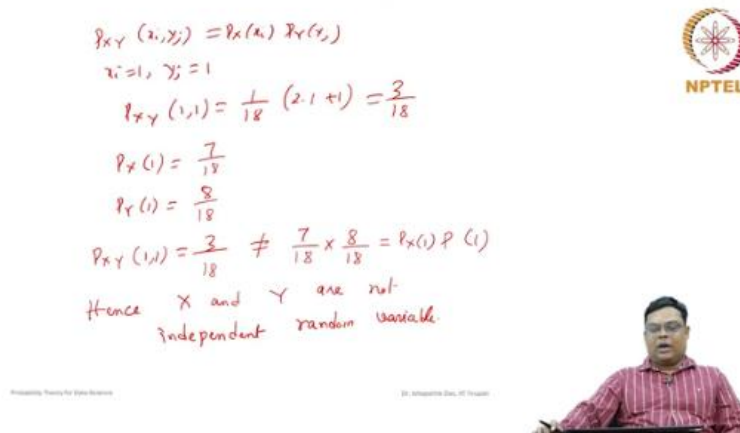 P_XY (x_i, y_j) = P_X(x_i) P_Y(y_j)
x_i = 1, y_j = 1
P_XY (1,1) = 1/18 (2.1 + 1) = 3/18
P_X (1) = 7/18
P_Y (1) = 8/18
P_XY (1,1) = 3/18 ≠ 7/18 × 8/18 = P_X(1) P (1)
Hence X and Y are not
independent random variable.
NPTEL
Probability Theory for Data Science